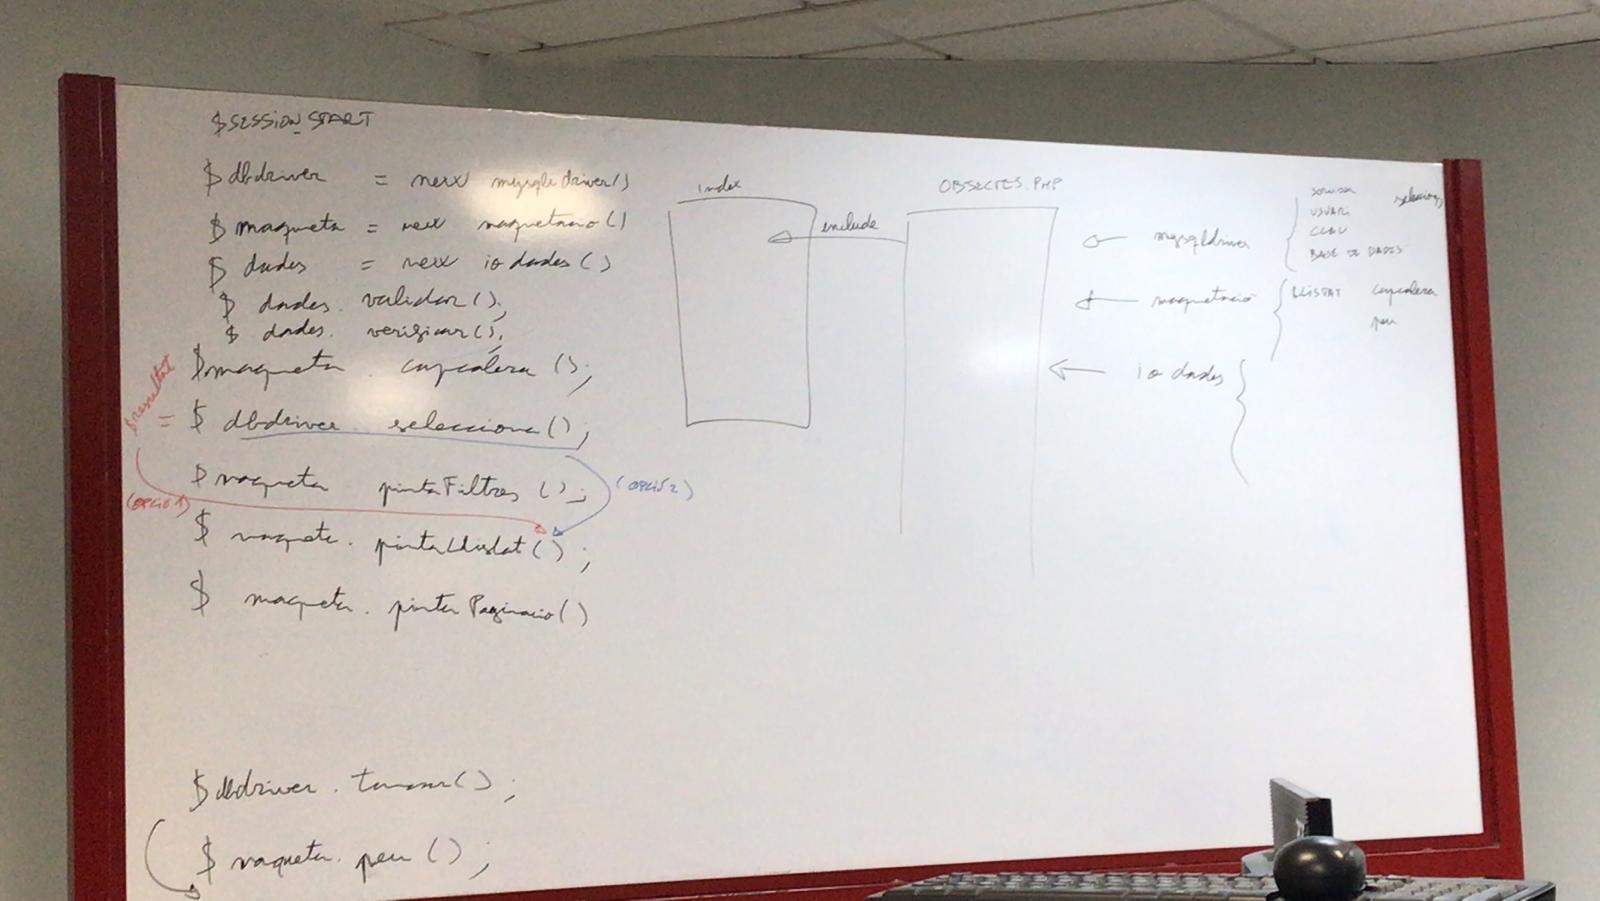 $SESSION_START
$dbdriver = new mysqlidriver()
$maqueta = new maquetacio()
$dades = new iodades()
$dades.validar();
$dades.verificar();
$maqueta.capcalera();
$resultat
= $dbdriver.selecciona();
$maqueta pintaFiltres();
(OPCIÓ 1)
(OPCIÓ 2)
$maqueta.pintaLlistat();
$maqueta.pintaPaginacio()
$dbdriver.tancar();
$maqueta.peu();
index
include
OBJECTES.PHP
mysqldriver
USUARI
CLAU
BASE DE DADES
maquetació
LLISTAT capcalera
peu
io dades